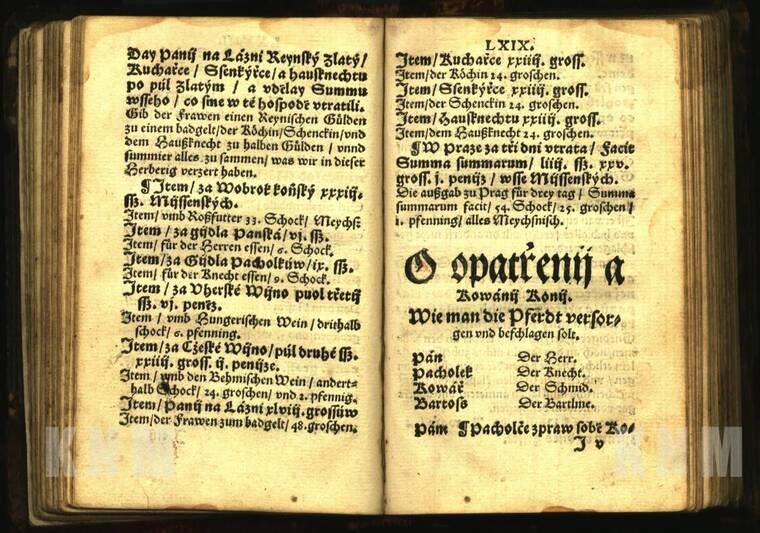 Day Panij na Lázni Reynský zlatý /
Kuchařce / Ssenkýřce / a hausknechtu
po púl zlatým / a vdělay Summu
wsseho / co sme w té hospodě vtratili.
Gib der Frawen einen Reynischen Gülden
zu einem badgelt / der Köchin / Schenckin / vnd
dem Haußknecht zu halben Gülden / vnnd
summier alles zu sammen / was wir in dieser
Herberig verzert haben.
¶ Item / za Wobrok koňský xxxiij.
ssz. Mijssenských.
Item / vmb Roßfutter 33. Schock / Meychs:
Item / za gijdla Panská / vj. ssz.
Item / für der Herren essen / 6. Schock.
Item / za Gijdla Pacholkúw / ix. ssz.
Item / für der Knecht essen / 9. Schock.
Item / za Vherské Wijno puol třetij
ssz. vj. peněz.
Item / vmb Hungerischen Wein / drithalb
schock / 6. pfenning.
Item / za Cžeské Wijno / púl druhé ssz.
xxiiij gross. ij. penijze.
Item / vmb den Behmischen Wein / andert-
halb Schock / 24. groschen / vnd 2. pfennig.
Item / Panij na Lázni xlviij. grossúw
Item / der Frawen zum badgelt / 48. groschen.
LXIX.
Item / Kuchařce xxiiij. gross.
Item / der Köchin 24. groschen.
Item / Ssenkýřce xxiiij. gross.
Item / der Schenckin 24. groschen.
Item / Hausknechtu xxiiij. gross.
Item / dem Haußknecht 24. groschen.
¶ W Praze za tři dni vtrata / Facit
Summa summarum / liiij. ssz. xxv.
gross. j. penijz / wsse Mijssenských.
Die außgab zu Prag für drey tag / Summa
summarum facit / 54. Schock / 25. groschen /
1. pfenning / alles Meychsnisch.
O opatřenij a
Kowánij Konij.
Wie man die Pferdt versor-
gen vnd beschlagen solt.
Pán Der Herr.
Pacholek Der Knecht.
Kowář Der Schmid.
Bartoss Der Bartlme.
Pám ¶ Pacholče zpraw sobě Ko-
I v
KNM
KNM